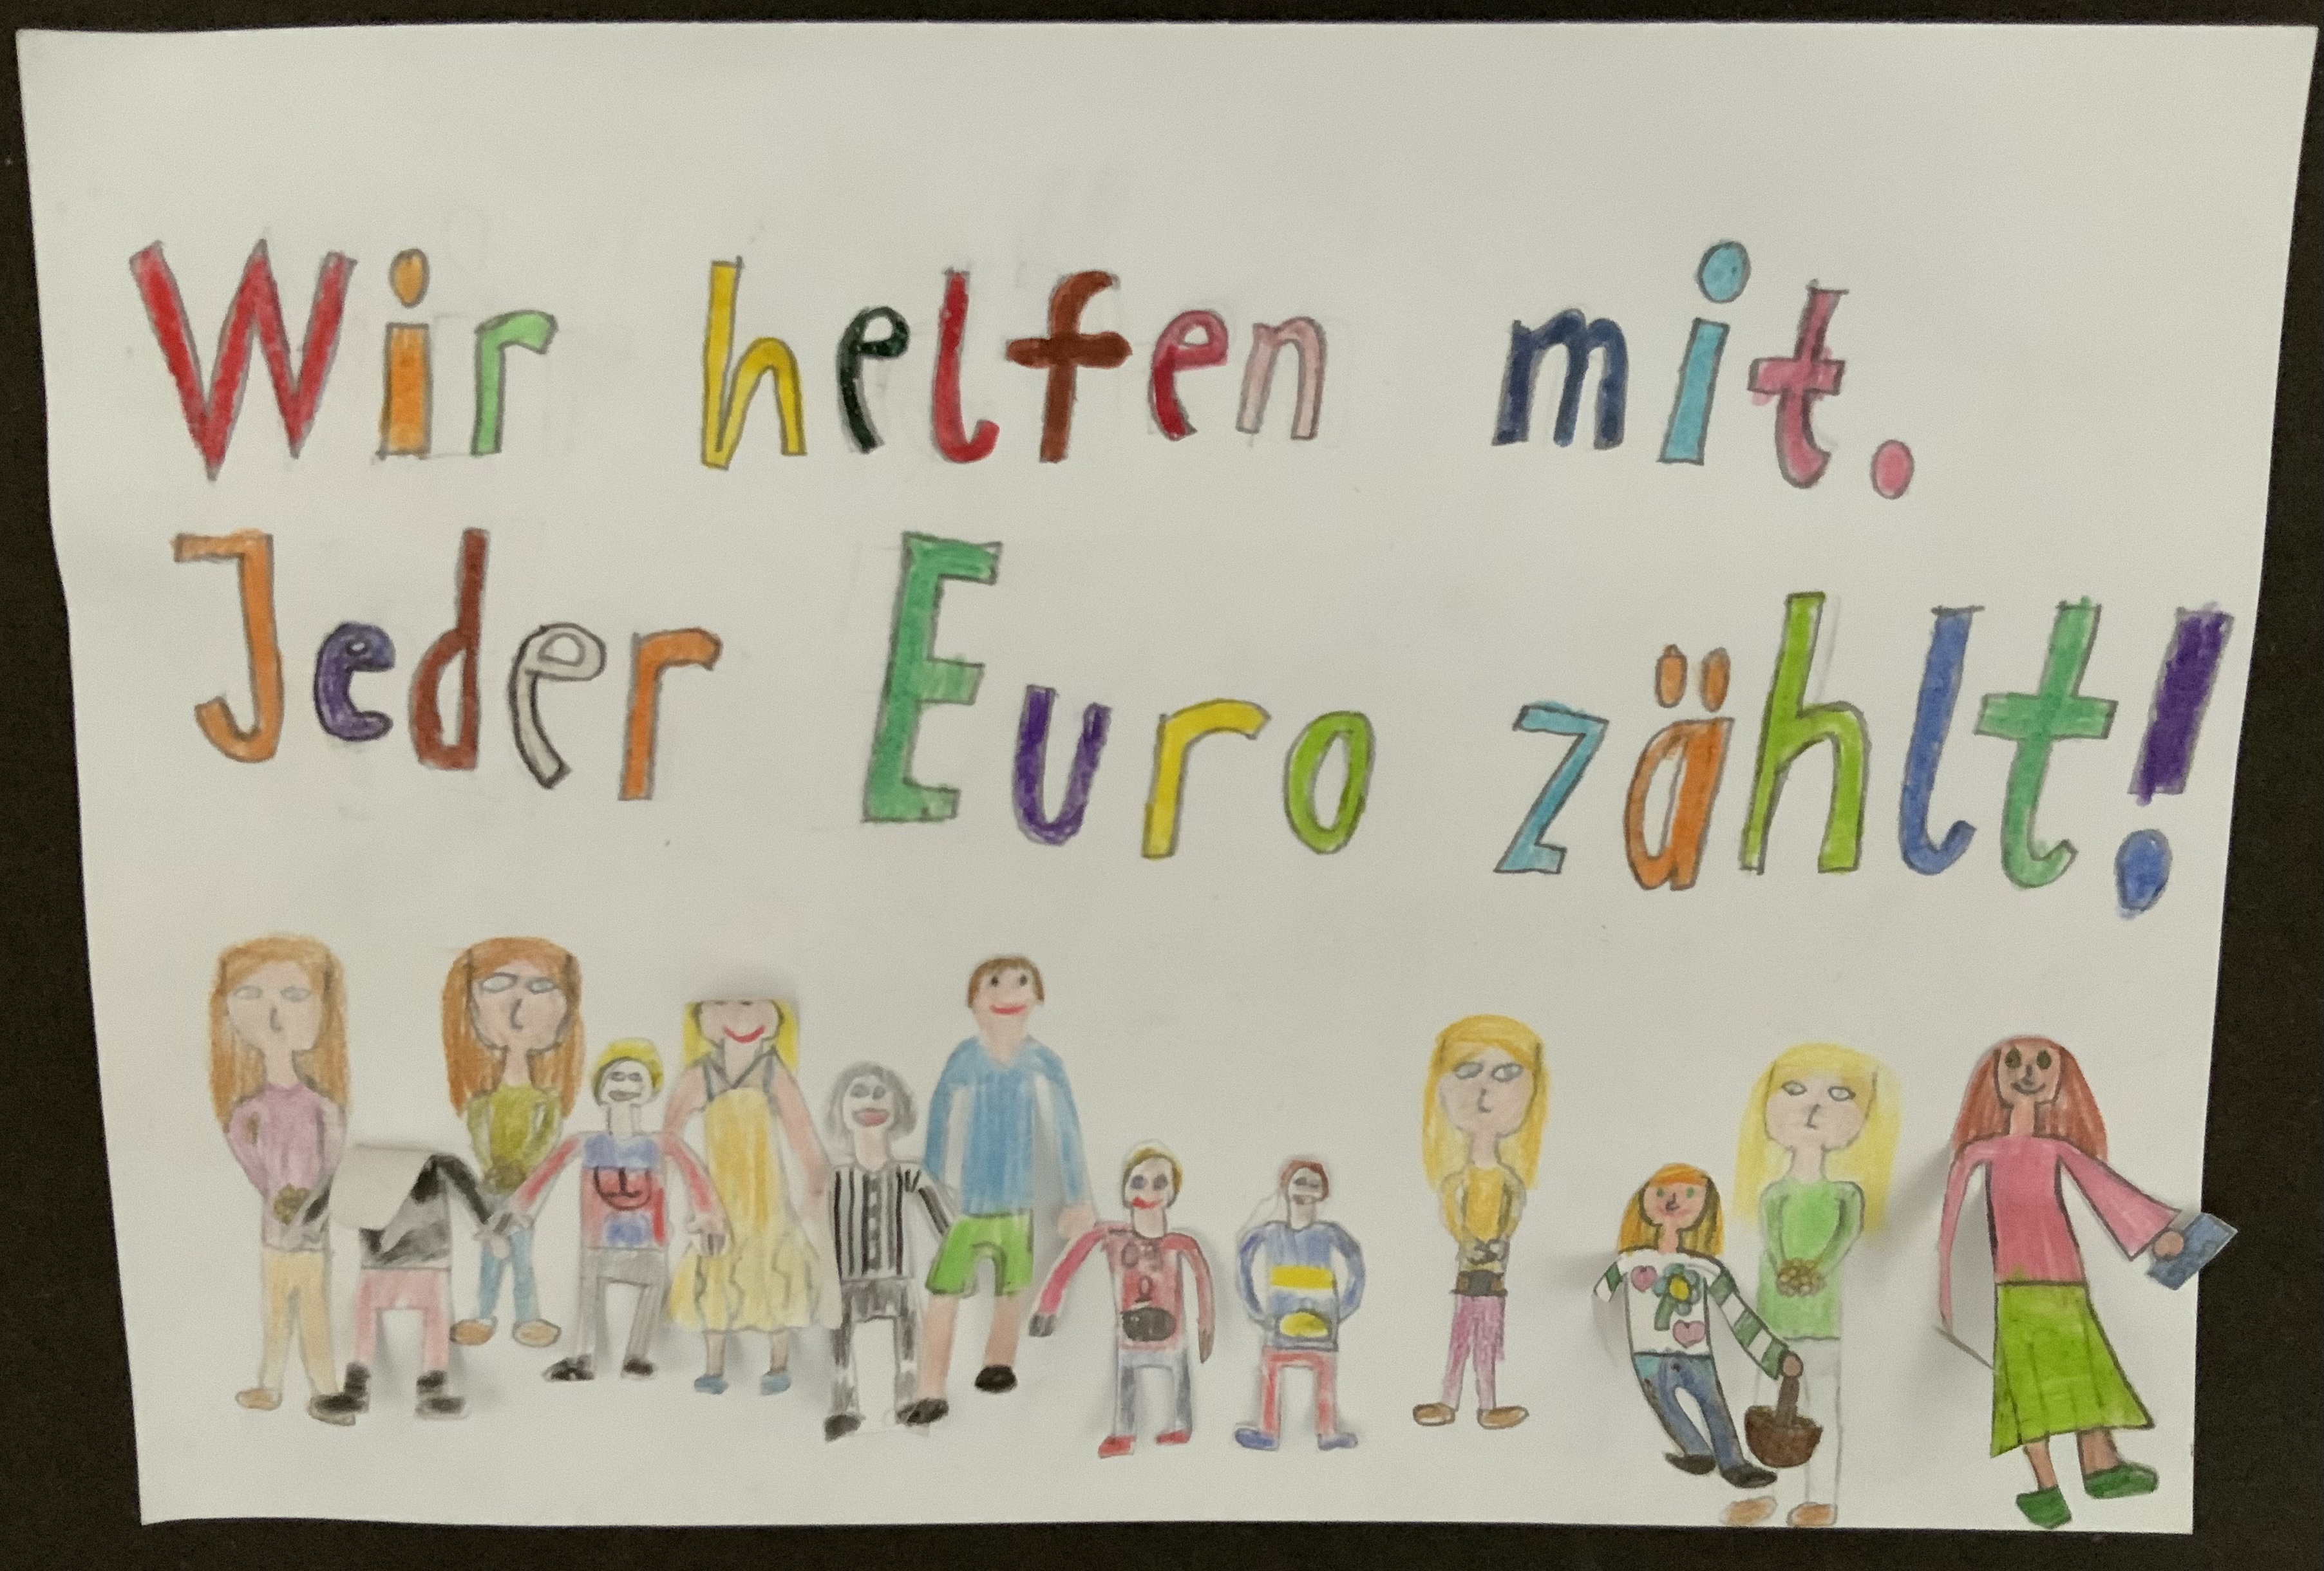 Wir helfen mit.
Jeder Euro zählt!